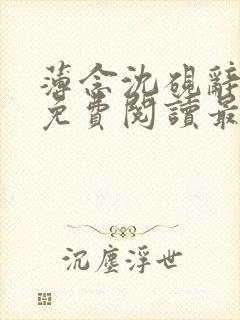 薄念沈硯辭
免費閱讀最
沉塵浮世